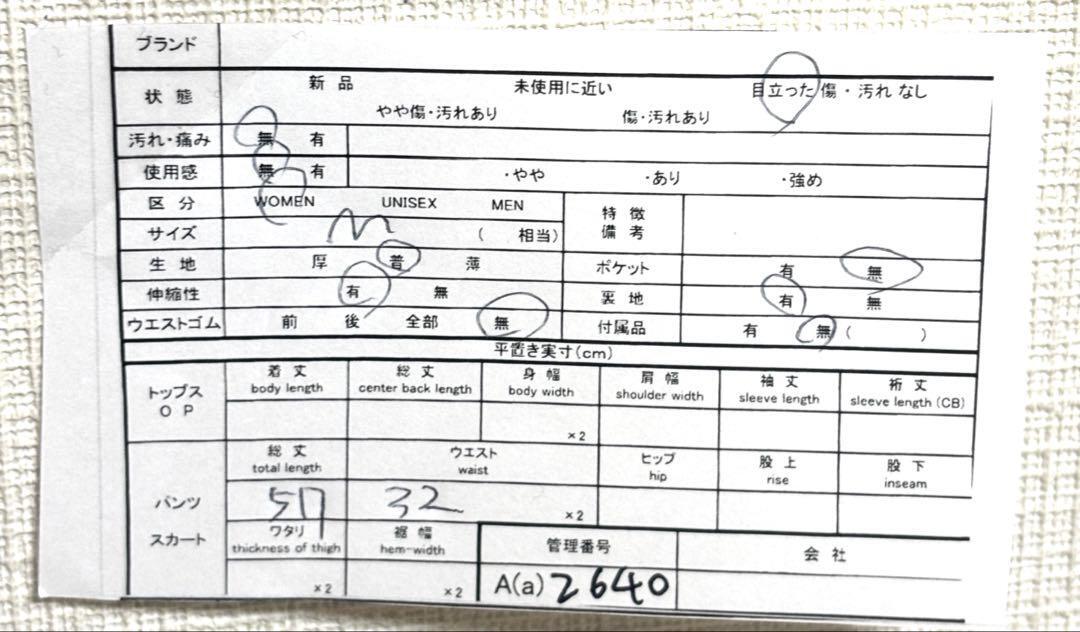 ブランド
状態 新品 未使用に近い 目立った傷・汚れなし
やや傷・汚れあり 傷・汚れあり
汚れ・痛み 無 有
使用感 無 有 ・やや ・あり ・強め
区分 WOMEN UNISEX MEN 特徴
備考
サイズ M ( 相当)
生地 厚 普 薄 ポケット 有 無
伸縮性 有 無 裏地 有 無
ウエストゴム 前 後 全部 無 付属品 有 無 ( )
平置き実寸(cm)
トップス
OP
着丈 総丈 身幅 肩幅 袖丈 裄丈
body length center back length body width shoulder width sleeve length sleeve length (CB)
×2
パンツ
スカート
総丈 ウエスト ヒップ 股上 股下
total length waist hip rise inseam
57 32 ×2
ワタリ 裾幅 管理番号 会社
thickness of thigh hem-width
×2 ×2 A(a) 2640